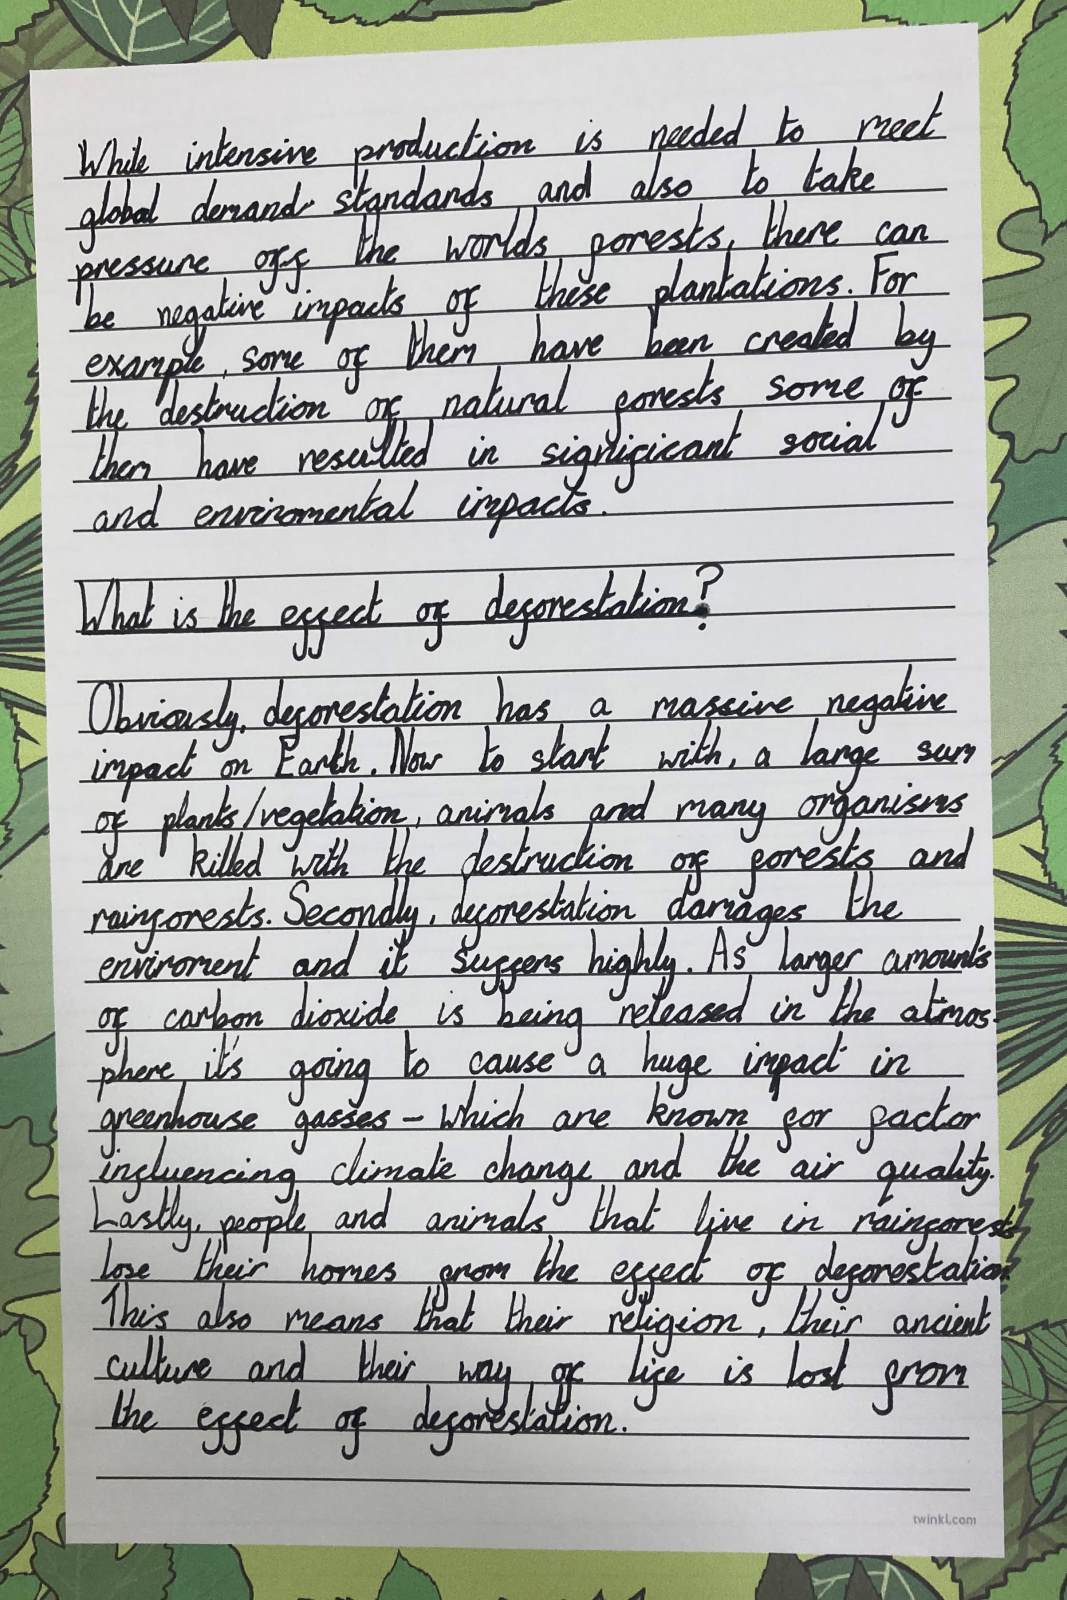 While intensive production is needed to meet
global demand standards and also to take
pressure off the worlds forests, there can
be negative impacts of these plantations. For
example, some of them have been created by
the destruction of natural forests some of
them have resulted in significant social
and enviromental impacts.
What is the effect of deforestation?
Obviously, deforestation has a massive negative
impact on Earth. Now to start with, a large sum
of plants/vegetation, animals and many organisms
are killed with the destruction of forests and
rainforests. Secondly, deforestation damages the
enviroment and it suffers highly. As larger amounts
of carbon dioxide is being released in the atmos-
phere, it's going to cause a huge impact in
greenhouse gasses - which are known for factor
influencing climate change and the air quality.
Lastly, people and animals that live in rainforests
lose their homes from the effect of deforestation.
This also means that their religion, their ancient
culture and their way of life is lost from
the effect of deforestation.
twinkl.com